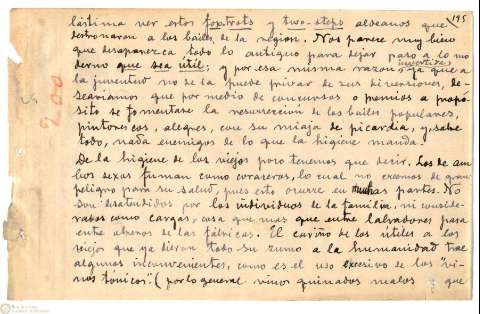 195
lástima ver estos foxtrots y two-steps aldeanos que
destronaron a los bailes de la región. Nos parece muy bien
que desaparezca todo lo antiguo para dejar paso a lo mo
derno que sea útil; y por esa misma razón, ya que a
invertida
la juventud no se la puede privar de sus diversiones, de-
searíamos que por medio de concursos o premios a propó
sito se fomentase la resurrección de los bailes populares,
pintorescos, alegres, con su miaja de picardía, y, sobre
todo, nada enemigos de lo que la higiene manda.
De la higiene de los viejos poco tenemos que decir. Los de am
bos sexos fuman como coraceros, lo cual no creamos de gran
peligro para su salud, pues esto ocurre en muchas partes. No
son desatendidos por los individuos de la familia, ni conside-
rados como cargas, cosa que mas que entre labradores pasa
entre obreros de las fábricas. El cariño de los útiles a los
viejos que ya dieron todo su zumo a la humanidad trae
algunos inconvenientes, como es el uso excesivo de los "vi-
nos tónicos" (por lo general vinos quinados malos y que
200